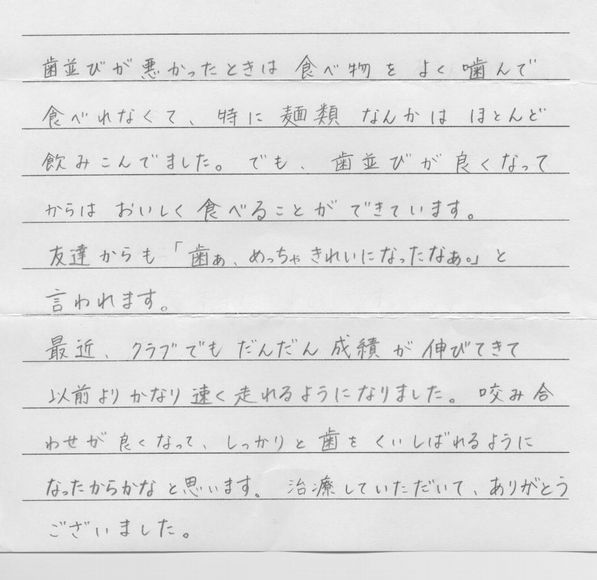 歯並びが悪かったときは食べ物をよく噛んで
食べれなくて、特に麺類なんかはほとんど
飲みこんでました。でも、歯並びが良くなって
からはおいしく食べることができています。
友達からも「歯ぁ、めっちゃきれいになったなぁ。」と
言われます。
最近、クラブでもだんだん成績が伸びてきて
以前よりかなり速く走れるようになりました。咬み合
わせが良くなって、しっかりと歯をくいしばれるように
なったからかなと思います。治療していただいて、ありがとう
ございました。